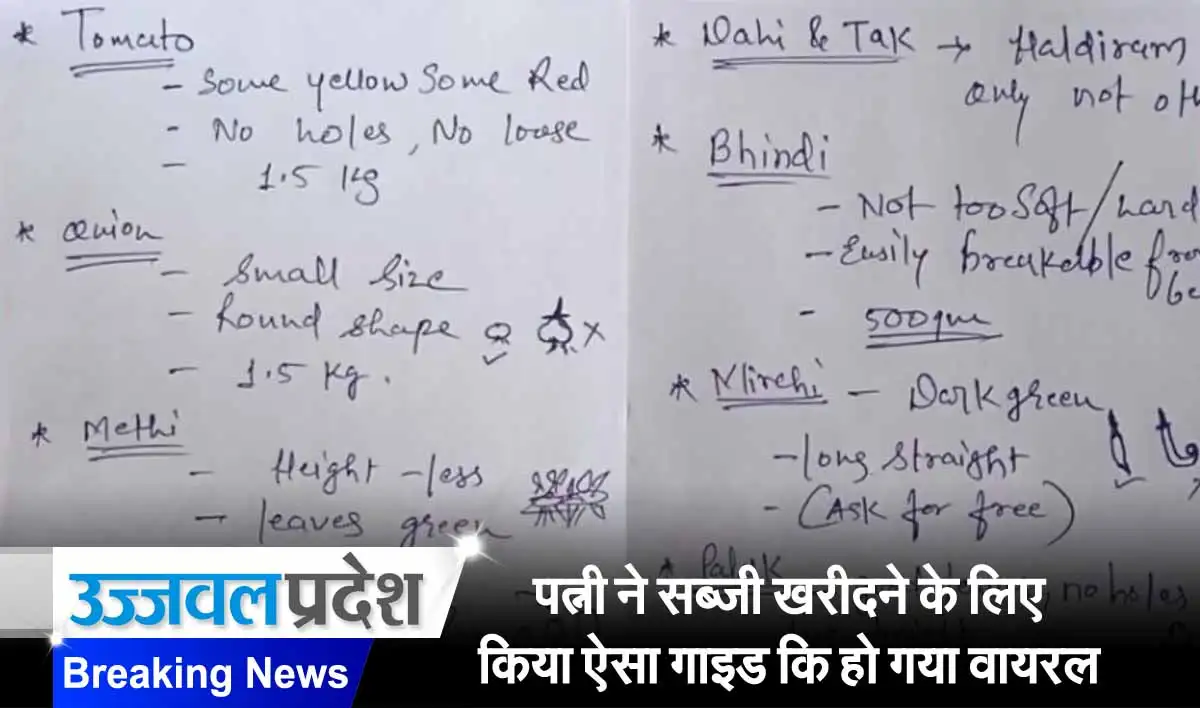 * Tomato
- Some yellow Some Red
- No holes, No loose
- 1.5 Kg
* Onion
- Small Size
- Round shape
- 1.5 Kg.
* Methi
- Height - less
- leaves green
* Dahi & Tak → Haldiram
only not
* Bhindi
- Not too Soft / hard
- Easily breakable
- 500gm
* Mirchi - Dark green
- long straight
- (Ask for free)
* Palak
no holes
उज्जवल प्रदेश
Breaking News
पत्नी ने सब्जी खरीदने के लिए
किया ऐसा गाइड कि हो गया वायरल